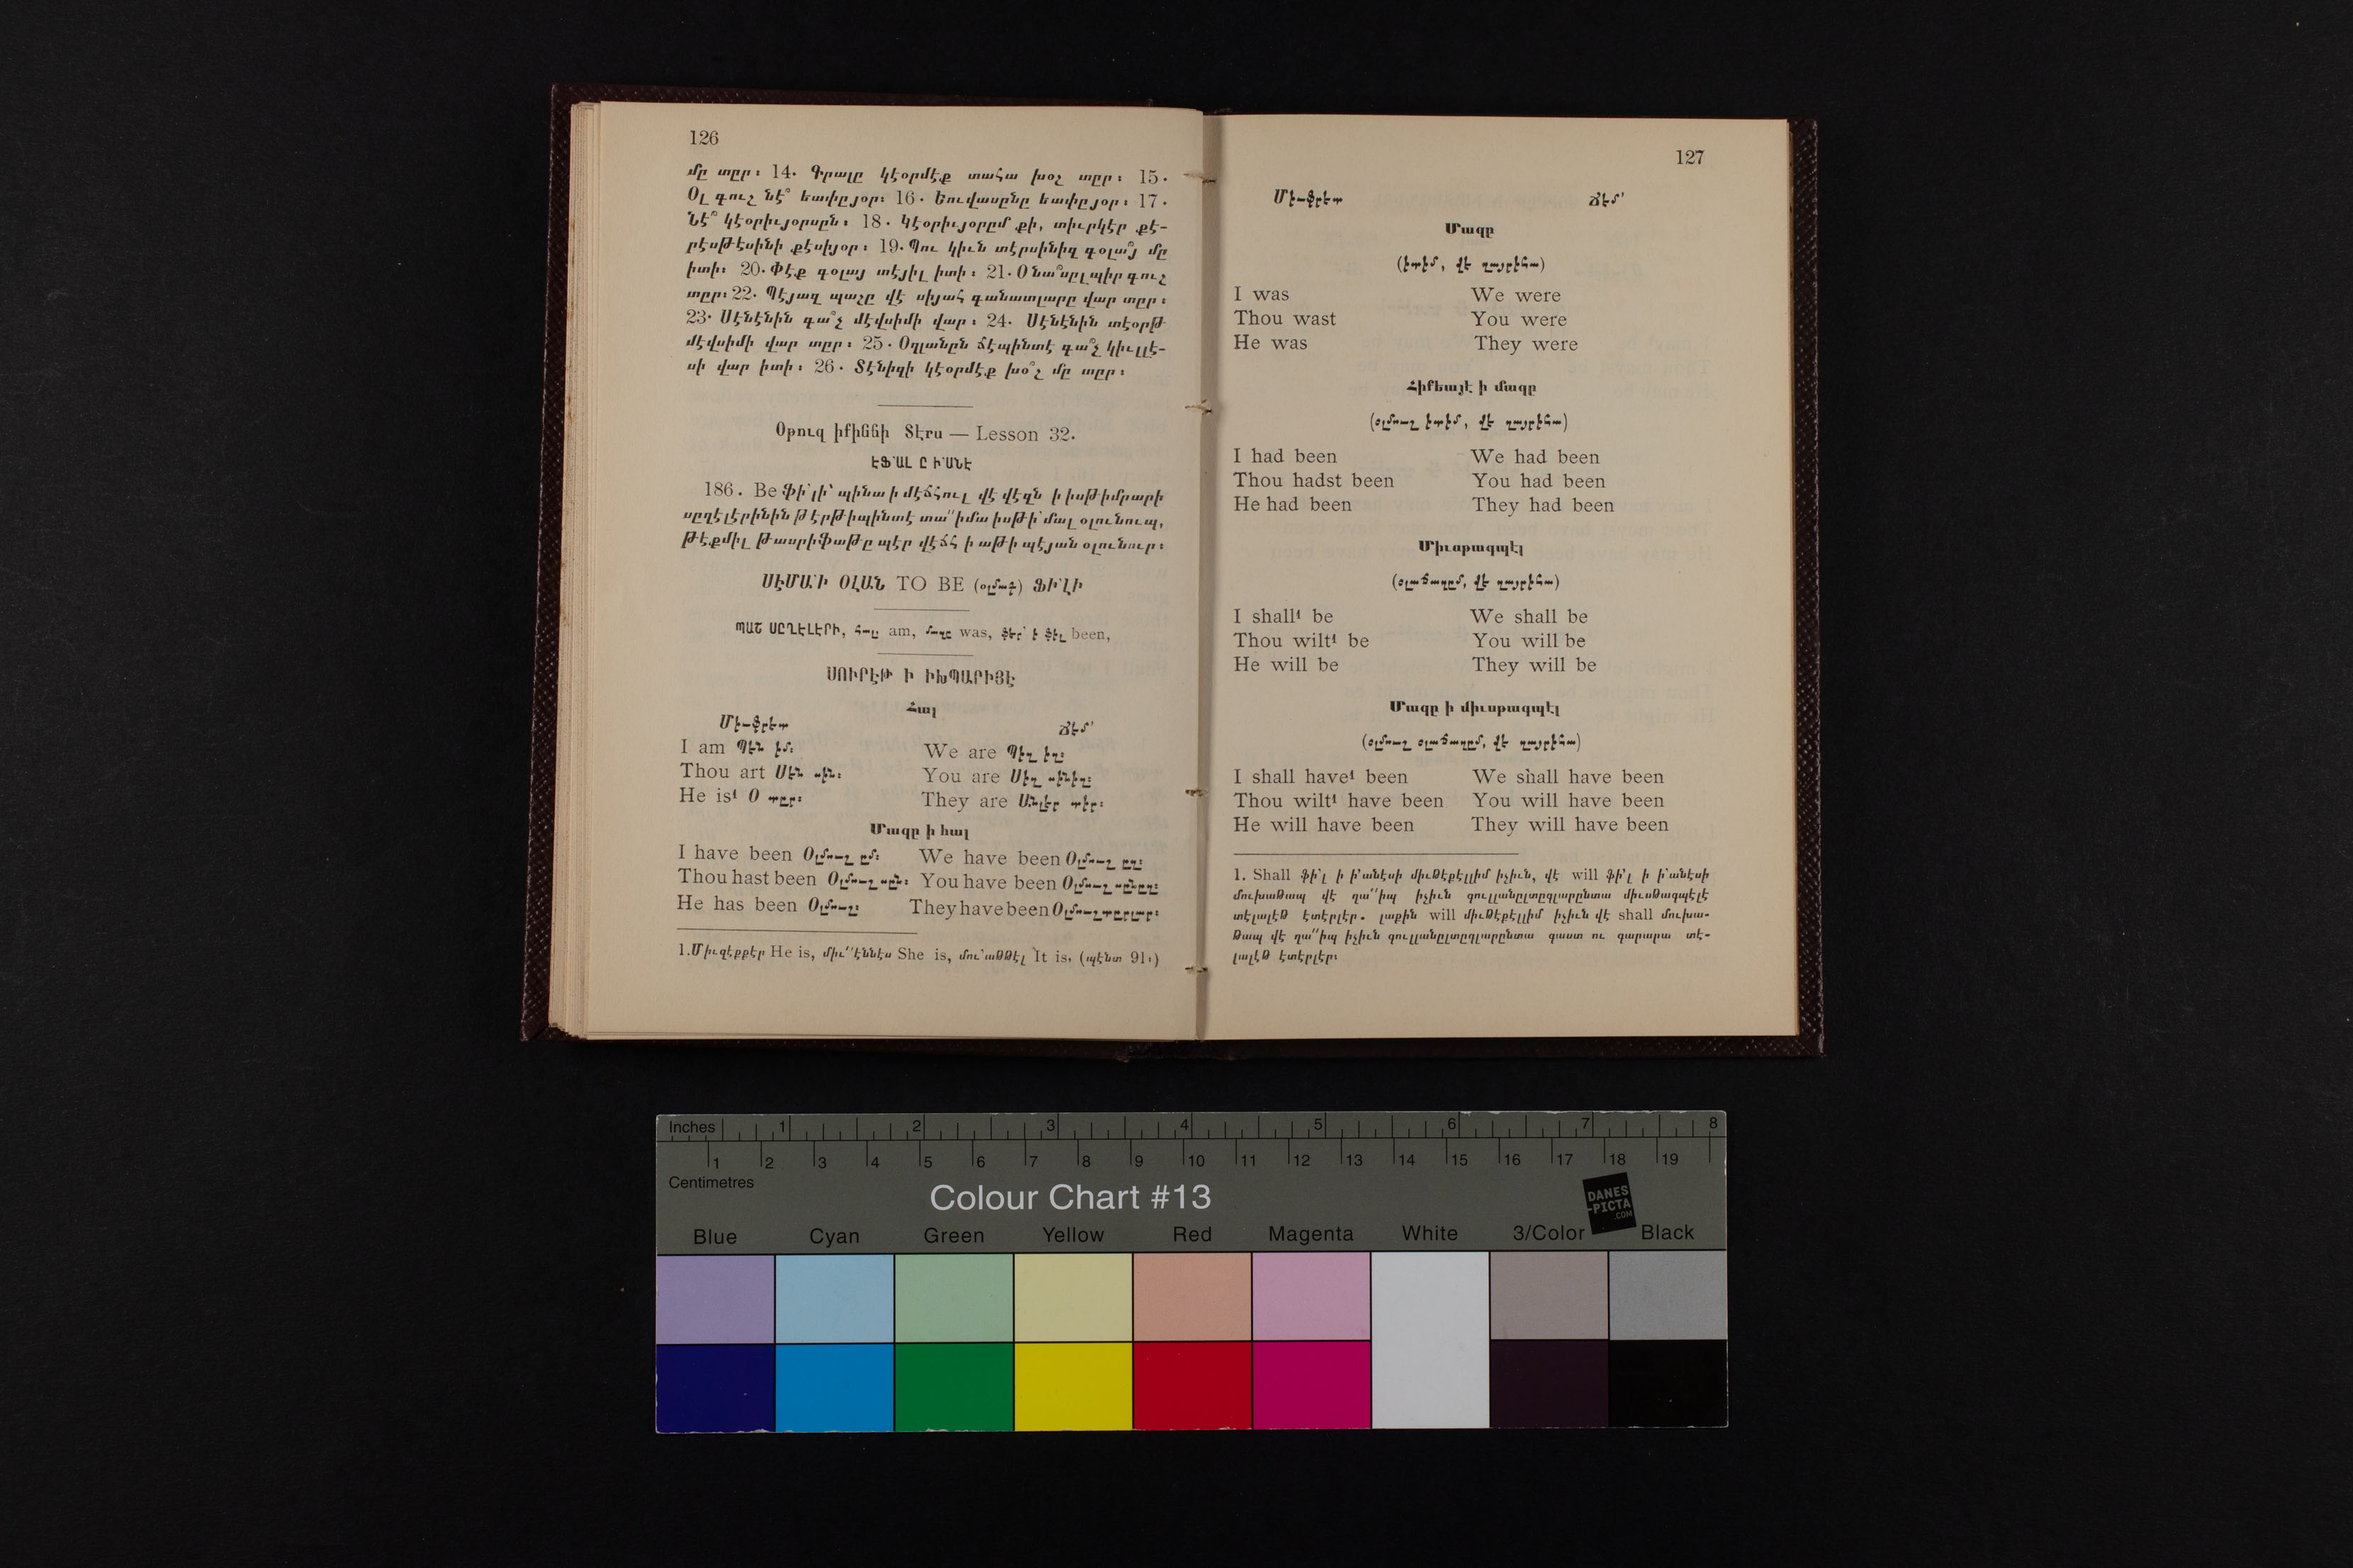 126
մը տըր։ 14. Գրալը կէօրմէք տահա խօշ տըր։ 15.
Օլ գուշ նէ՞ եափըյօր։ 16. Եուվասընը եափըյօր։ 17.
Նէ՞ կէօրիւյօրսըն։ 18. Կէօրիւյօրըմ քի, տիւրկէր քէ-
րէսթէսինի քէսիյօր։ 19. Պու կիւն տէրսինիզ գօլա՞յ մը
իտի։ 20. Փէք գօլայ տէյիլ իտի։ 21. Օ նա՞սըլ պիր գուշ
տըր։ 22. Պէյազ պաշը վէ սիյահ գանատլարը վար տըր։
23. Սէնէնին գա՞չ մէվսիմի վար։ 24. Սէնէնին տէօրթ
մէվսիմի վար տըր։ 25. Օղլանըն ճէպինտէ գա՞չ կիւլլէ-
սի վար իտի։ 26. Տէնիզի կէօրմէք խօ՞շ մը տըր։
Օթուզ իքինճի Տէրս — Lesson 32.
ԷՖ՚ԱԼ Ը Ի՚ԱՆԷ
186. Be ֆի՛լի՝ պինա ի մէճհուլ վէ վէզն ի իսթիմրարի
սըղէլէրինին թէրթիպինտէ տա՛՛իմա իսթի՛մալ օլունուպ,
թէքմիլ թասրիֆաթը պէր վէճհ ի աթի պէյան օլունուր։
ՍԷՄԱ՚Ի ՕԼԱՆ TO BE (օլմաք) ՖԻ՚ԼԻ
ՊԱՇ ՍԸՂԷԼԷՐԻ, հալ am, մազը was, ֆէր՛ ի ֆիլ been,
ՍՈՒՐԷԹ Ի ԻԽՊԱՐԻՅԷ
Հալ
Միւֆրետ ճէմ՛
I am Պէն իմ։ We are Պիզ իզ։
Thou art Սէն սին։ You are Սիզ սինիզ։
He is¹ Օ տըր։ They are Անլեր տիր։
Մազը ի հալ
I have been Օլմուշ ըմ։ We have been Օլմուշ ըզ։
Thou hast been Օլմուշ սըն։ You have been Օլմուշ սընըզ։
He has been Օլմուշ։ They have been Օլմուշ տըրլար։
1. Միւզէքքէր He is, միւ՛՛էննէս She is, մու՛աթթէլ It is, (պէնտ 91։)
127
Միւֆրետ ճէմ՛
Մազը
(իտիմ, վէ ղայրիհա)
I was We were
Thou wast You were
He was They were
Հիքեայէ ի մազը
(օլմուշ իտիմ, վէ ղայրիհա)
I had been We had been
Thou hadst been You had been
He had been They had been
Միւսթագպէլ
(օլաճաղըմ, վէ ղայրիհա)
I shall¹ be We shall be
Thou wilt¹ be You will be
He will be They will be
Մազը ի միւսթագպէլ
(օլմուշ օլաճաղըմ, վէ ղայրիհա)
I shall have¹ been We shall have been
Thou wilt¹ have been You will have been
He will have been They will have been
1. Shall ֆի՛լ ի ի՛անէսի միւթէքէլլիմ իչիւն, վէ will ֆի՛լ ի ի՛անէսի
մուխաթապ վէ ղա՛՛իպ իչիւն գուլլանըլտըգլարընտա միւսթագպէլէ
տէլալէթ էտէրլէր. լաքին will միւթէքէլլիմ իչիւն վէ shall մուխա-
թապ վէ ղա՛՛իպ իչիւն գուլլանըլտըգլարընտա գաստ ու գարարա տէ-
լալէթ էտէրլէր։
Inches 1 2 3 4 5 6 7 8
1 2 3 4 5 6 7 8 9 10 11 12 13 14 15 16 17 18 19
Centimetres
Colour Chart #13
DANES
-PICTA
.COM
Blue Cyan Green Yellow Red Magenta White 3/Color Black